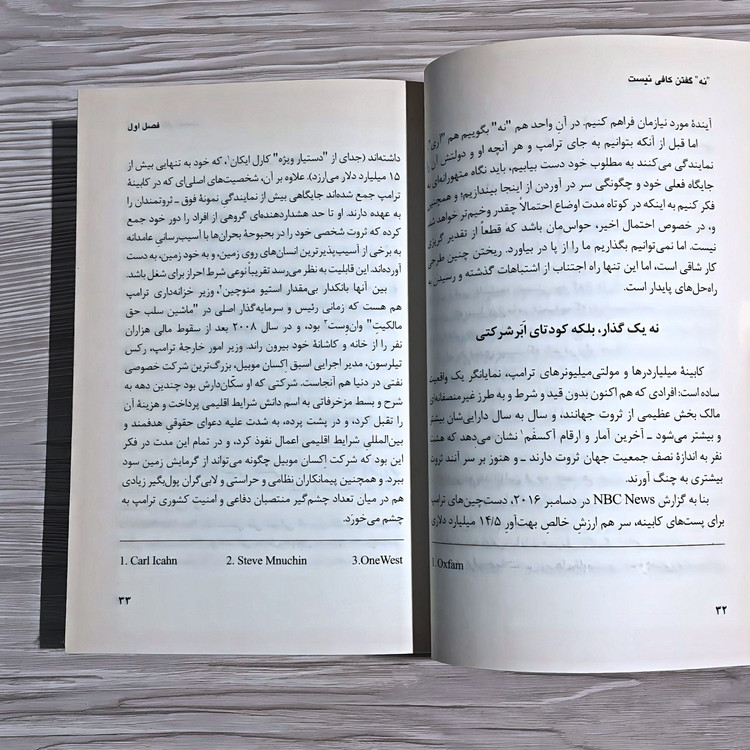 "نه" گفتن کافی نیست
آیندهٔ مورد نیازمان فراهم کنیم. در آنِ واحد هم "نه" بگوییم هم "آری"
اما قبل از آنکه بتوانیم به جای ترامپ و هر آنچه او و دولتش آن را
نمایندگی می‌کنند به مطلوب خود دست بیابیم، باید نگاه متهورانه‌ای به
جایگاه فعلی خود و چگونگی سر در آوردن از اینجا بیندازیم؛ و همچنین
فکر کنیم به اینکه در کوتاه مدت اوضاع احتمالاً چقدر وخیم‌تر خواهد شد
و، در خصوص احتمال اخیر، حواس‌مان باشد که قطعاً از تقدیر گریزی
نیست. اما نمی‌توانیم بگذاریم ما را از پا در بیاورد. ریختن چنین طرحی
کار شاقی است، اما این تنها راه اجتناب از اشتباهات گذشته و رسیدن به
راه‌حل‌های پایدار است.
نه یک گذار، بلکه کودتای اَبَرشرکتی
کابینهٔ میلیاردرها و مولتی‌میلیونرهای ترامپ، نمایانگر یک واقعیت
ساده است: افرادی که هم‌اکنون بدون قید و شرط و به طرز غیرمنصفانه‌ای
مالک بخش عظیمی از ثروت جهانند، و سال به سال دارایی‌شان بیشتر
و بیشتر می‌شود ـ آخرین آمار و ارقام آکسفَم۱ نشان می‌دهد که هشت
نفر به اندازهٔ نصف جمعیت جهان ثروت دارند ـ و هنوز بر سر آنند ثروت
بیشتری به چنگ آورند.
بنا به گزارش NBC News در دسامبر ۲۰۱۶، دست‌چین‌های ترامپ
برای پست‌های کابینه، سر هم ارزشِ خالصِ بهت‌آورِ ۱۴/۵ میلیارد دلاری
1. Oxfam
۳۲
فصل اول
داشته‌اند (جدای از "دستیار ویژه" کارل ایکان۱، که خود به تنهایی بیش از
۱۵ میلیارد دلار می‌ارزد). علاوه بر آن، شخصیت‌های اصلی‌ای که در کابینهٔ
ترامپ جمع شده‌اند جایگاهی بیش از نمایندگی نمونهٔ فوق ـ ثروتمندان را
به عهده دارند. او تا حد هشداردهنده‌ای گروهی از افراد را دور خود جمع
کرده که ثروت شخصی خود را در بحبوحهٔ بحران‌ها با آسیب‌رسانی عامدانه
به برخی از آسیب‌پذیرترین انسان‌های روی زمین، و به خود زمین، به دست
آورده‌اند. این قابلیت به نظر می‌رسد تقریباً نوعی شرط احراز برای شغل باشد.
بین آنها بانکدار بی‌مقدار استیو منوچین۲، وزیر خزانه‌داری ترامپ
هم هست که زمانی رئیس و سرمایه‌گذار اصلی در "ماشین سلب حق
مالکیتِ" وان‌وِست۳ بود، و در سال ۲۰۰۸ بعد از سقوط مالی هزاران
نفر را از خانه و کاشانهٔ خود بیرون راند. وزیر امور خارجهٔ ترامپ، رکس
تیلرسون، مدیر اجرایی اسبق اِکسان موبیل، بزرگ‌ترین شرکت خصوصی
نفتی در دنیا هم آنجاست. شرکتی که او سکّان‌دارش بود چندین دهه به
شرح و بسط مزخرفاتی به اسم دانش شرایط اقلیمی پرداخت و هزینهٔ آن
را تقبل کرد، و در پشت پرده، به شدت علیه دعوای حقوقی هدفمند و
بین‌المللیِ شرایط اقلیمی اعمال نفوذ کرد، و در تمام این مدت در فکر
این بود که شرکت اِکسان موبیل چگونه می‌تواند از گرمایش زمین سود
ببرد. و همچنین پیمانکاران نظامی و حراستی و لابی‌گران پول‌بگیر زیادی
هم در میان تعداد چشم‌گیر منتصبان دفاعی و امنیت کشوری ترامپ به
چشم می‌خورَد.
1. Carl Icahn 2. Steve Mnuchin 3.OneWest
۳۳